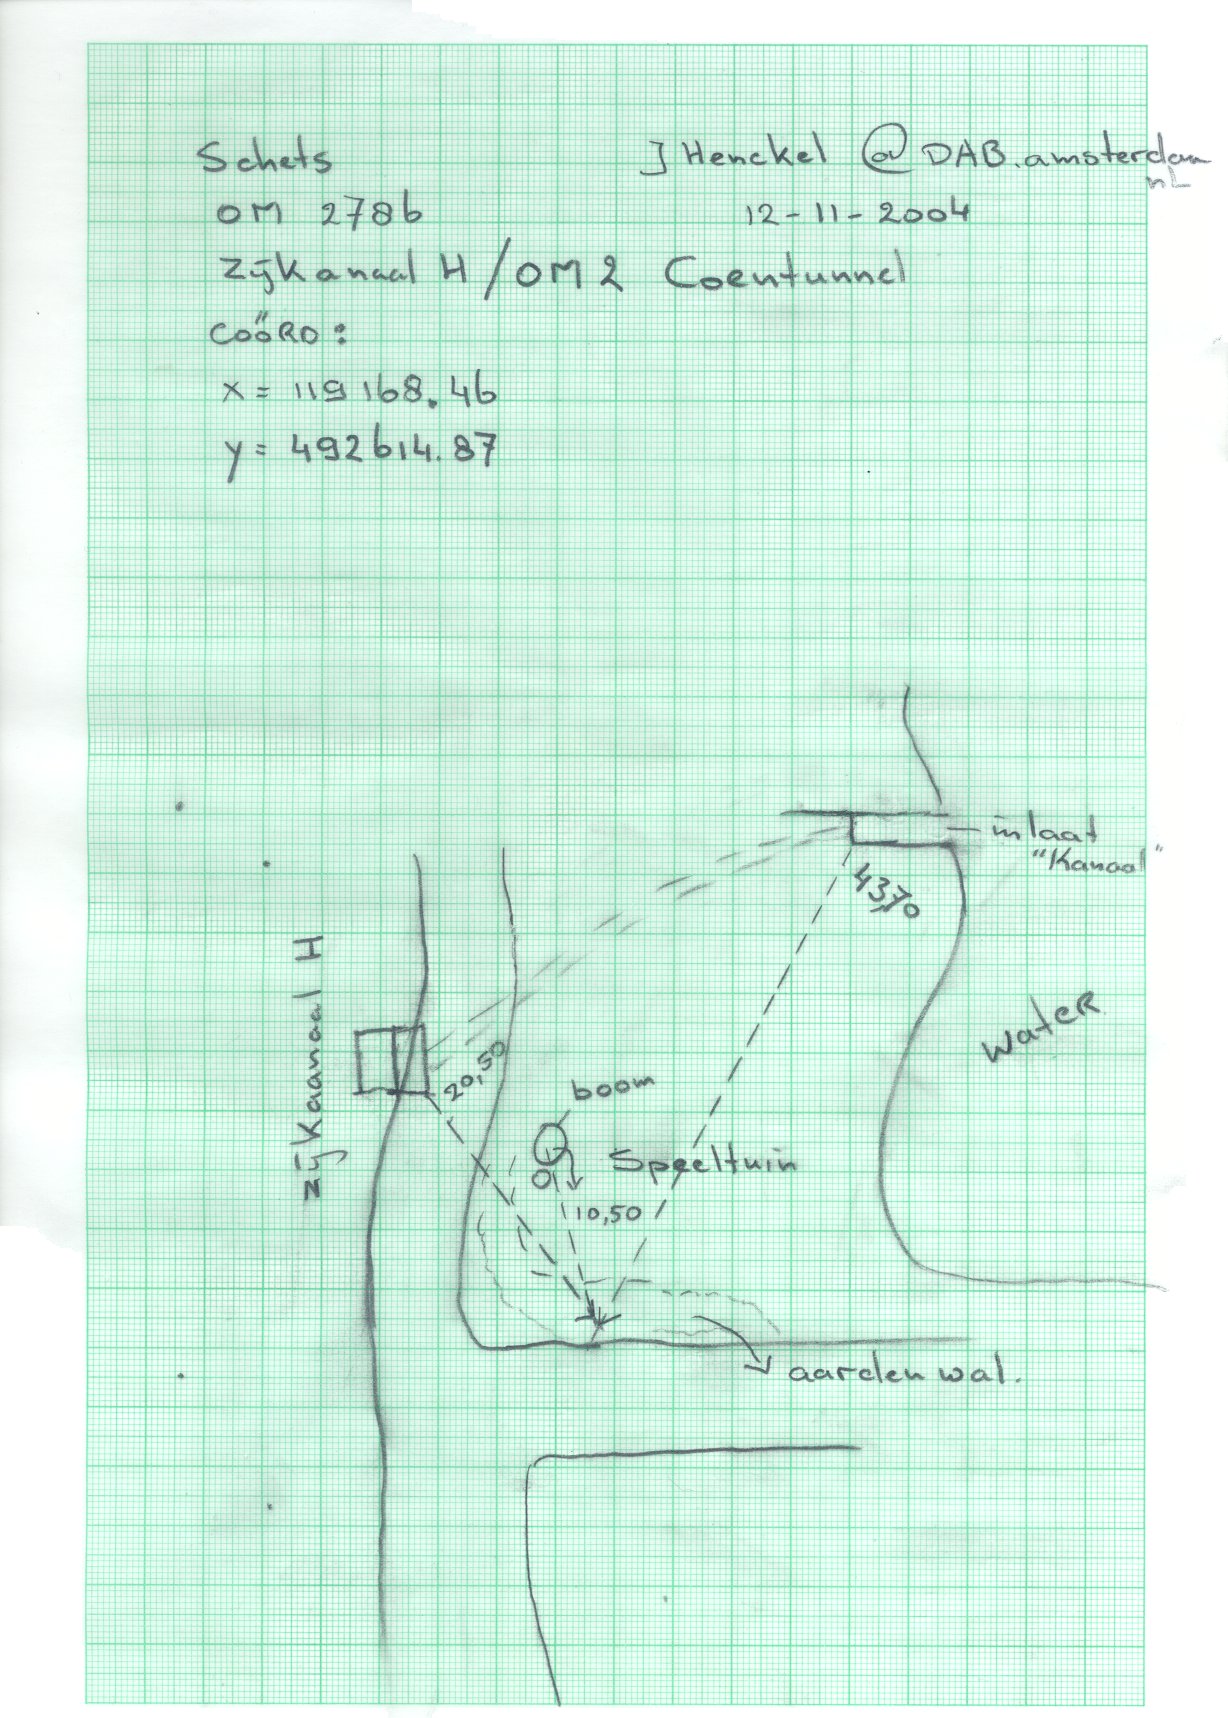 Schets
J Henckel @ DAB.amsterdam
nL
OM 2786
12-11-2004
Zijkanaal H/OM2 Coentunnel
COÖRD:
x = 119168.46
y = 492614.87
inlaat
"Kanaal"
43,70
Zijkaanaal H
water
20,50
boom
Speeltuin
10,50
aarden wal.